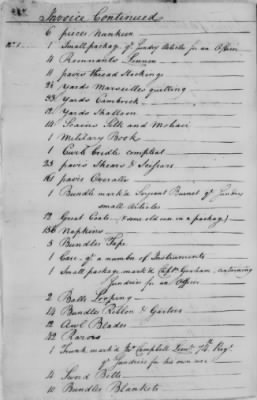 Invoice Continued
6 pieces Nankeen
1 Small package qt Sundry Articles for an Officer
4 Remnants Linnen
11 pairs thread Stockings
2¼ Yards Marseilles quilting
Yards Cambrick
12 Yards Shalloon
14 Scains Silk and Mohair
1 Military Book
1 Curb bridle compleat
23 pairs Shears & Scissars
161 pairs Overalls
1 Bundle mark'd Serjeant Burnet qt Sundry
small Articles
12 Great Coats (some old ones in a package)
136 Napkins
3 Bundles Tape
1 Case qt a number of Instruments
1 Small package mark'd Captn Graham, containing
Sundries for an Officer
2 Bolts Looping
14 Bundles Ribbon & Garters
12 Awl Blades
42 Razors
1 Trunk mark'd Mr Campbell Lieut 74th Regt
qt Sundries for his own use
4 Sword Belts
10 Bundles Blankets